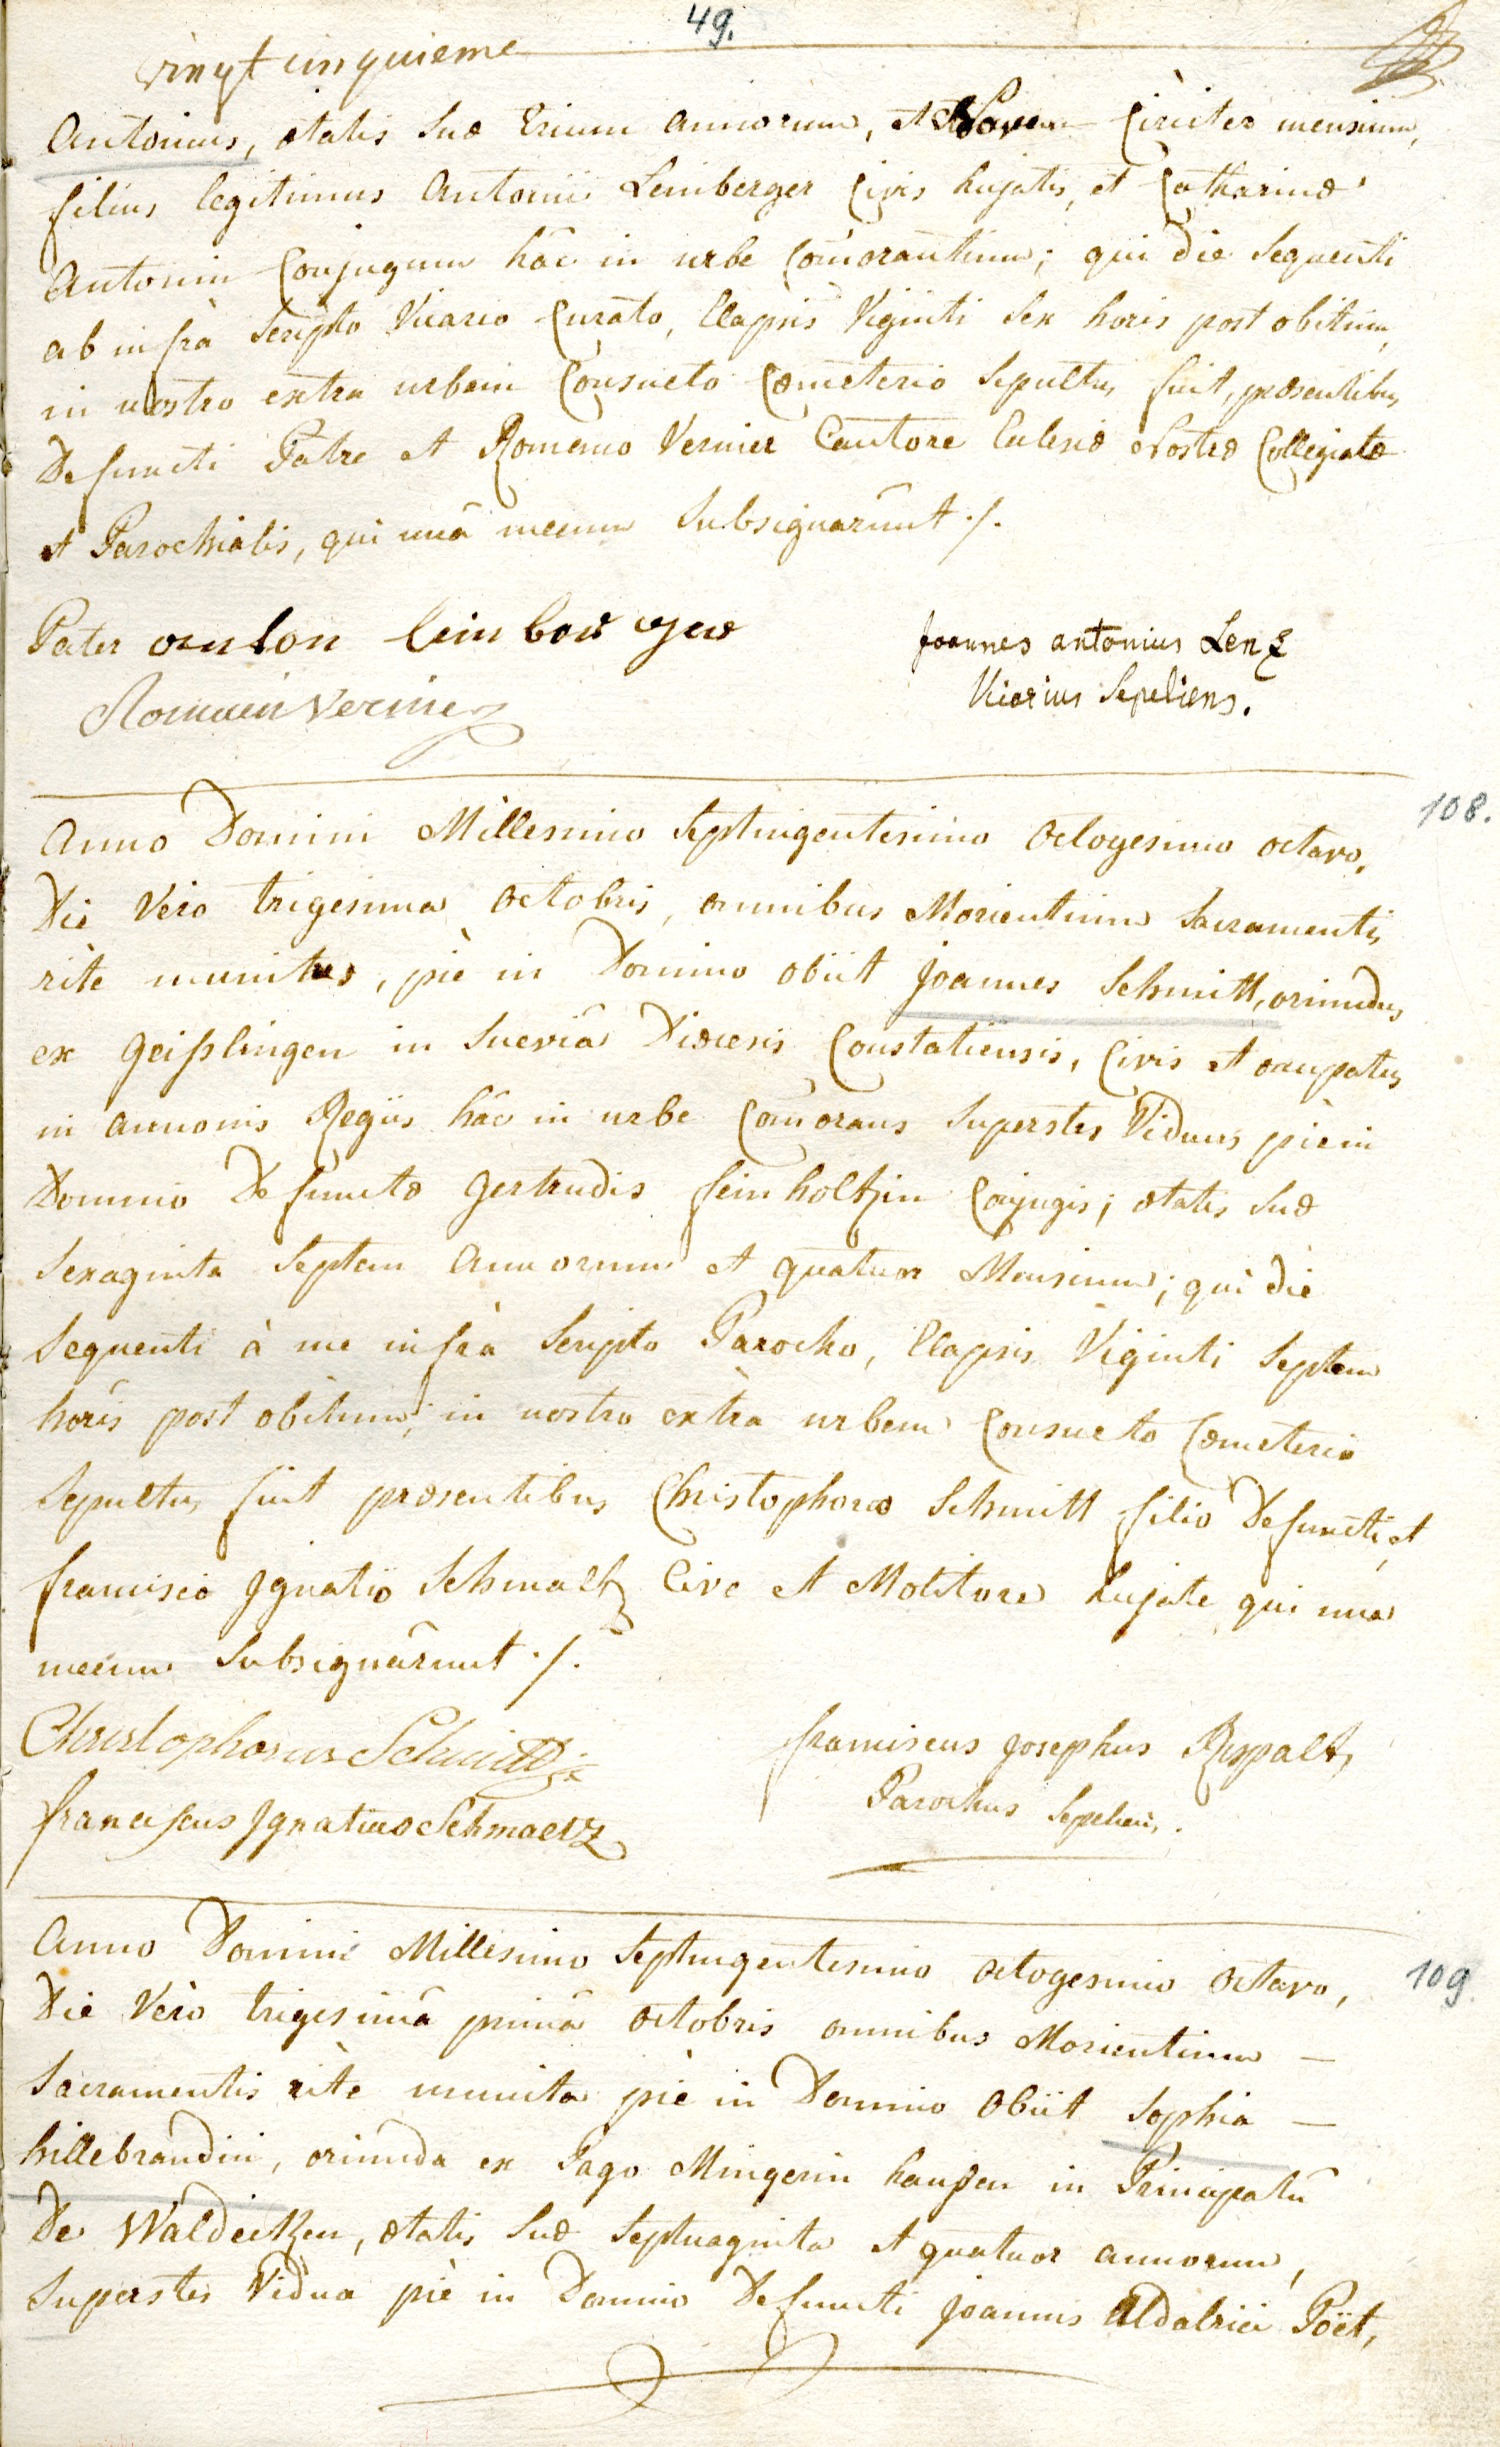 49.
vingt cinquieme
Antonius, ætatis suæ trium annorum, et novem circiter mensium,
filius legitimus Antonii Leinberger civis hujatis, et Catharinæ
Antonin Conjugum hâc in urbe com̃orantium; qui die sequenti
ab infrà scripto Vicario Curato, Elapsis Viginti sex horis post obitum,
in nostro extra urbem Consueto Cœmeterio sepultus fuit, præsentibus
Defuncti Patre et Romano Vernier Cantore Eclesiæ nostræ Collegiatæ
et Parochialis, qui unâ mecum subsignarûnt ./.
Pater anton leinberger
Joannes antonius Lenz
Romain Vernier
Vicarius Sepeliens.
108.
Anno Domini Millesimo Septingentesimo octogesimo octavo,
Die Vero trigesima octobris, omnibus Morientium Sacramentis
rite munitus, piè in Domino obiit Joannes Schmitt, oriundus
ex Geißlingen in Sueviâ Diœcesis Constatiensis, Civis et occupatus
in annonis Regiis hâc in urbe Com̃orans superstes Viduus piè in
Domino Defunctæ Gertrudis feinholtzin Conjugis; ætatis suæ
sexaginta septem annorum et quatuor Mensium; qui die
sequenti à me infrà scripto Parocho, Elapsis Viginti septem
horis post obitum; in nostro extrà urbem Consueto Cœmeterio
sepultus fuit præsentibus Christophoro Schmitt filio Defuncti, et
francisco Ignatio Schmaltz Cive et Molitore hujate qui una
mecum subsignârunt ./.
Christophorus Schmitt
franciscus Josephus Rispalt,
Parochus Sepeliens.
franciscus Ignatius Schmaltz
109
Anno Domini Millesimo Septingentesimo octogesimo octavo,
Die Verò trigesimâ primâ octobris omnibus Morientium —
Sacramentis ritè munita piè in Domino Obiit Sophia —
hillebrandin, oriunda ex Pago Mingerinhausen in Principatû
De Waldecken, ætatis suæ septuaginta et quatuor annorum,
superstes Vidua piè in Domino Defuncti Joannis Udalrici Poët,